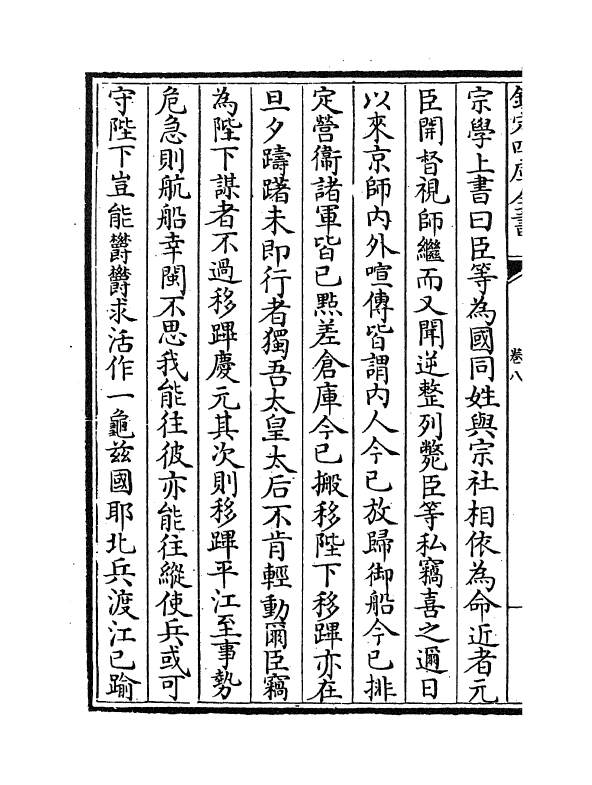 欽定四庫全書
卷八
宗學上書曰臣等為國同姓與宗社相依為命近者元
臣開督視師繼而又聞逆整列斃臣等私竊喜之邇日
以來京師內外喧傳皆謂內人今已放歸御船今已排
定營衞諸軍皆已㸃差倉庫今已搬移陛下移蹕亦在
旦夕躊躇未即行者獨吾太皇太后不肯輕動爾臣竊
為陛下謀者不過移蹕慶元其次則移蹕平江至事勢
危急則航船幸閩不思我能往彼亦能往縱使兵或可
守陛下豈能欝欝求活作一龜兹國耶北兵渡江已踰